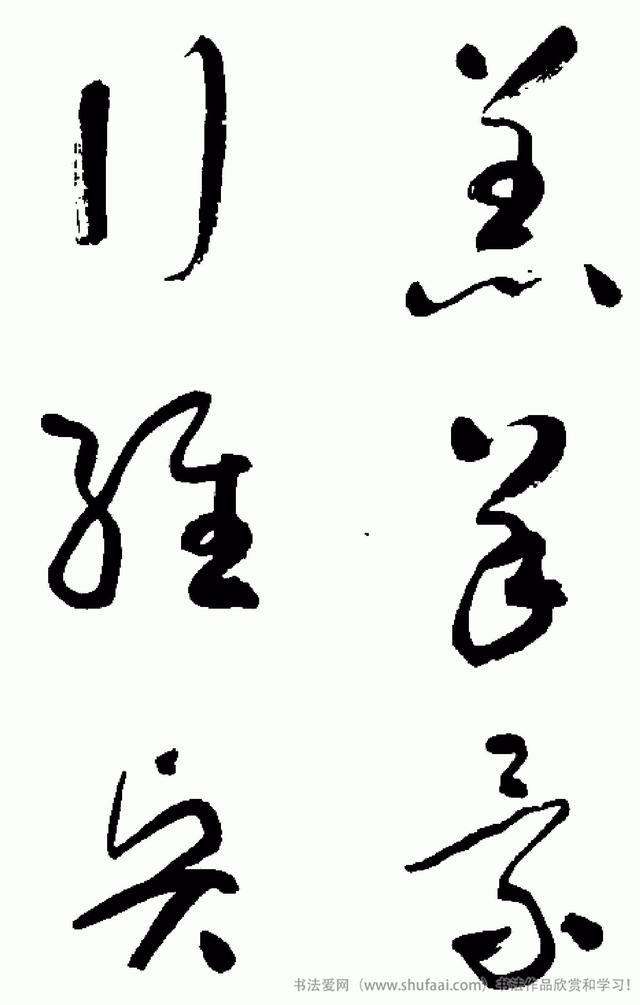 羔羊景
行維賢
书法爱网（www.shufaai.com）书法作品欣赏和学习！